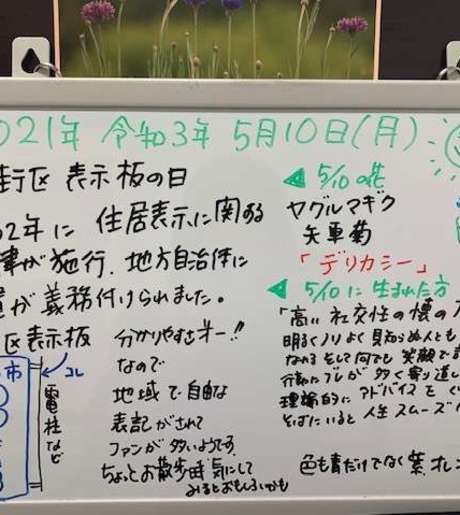 021年 令和3年 5月10日(月)
街区 表示板の日
02年に 住居表示に関する
律が施行、地方自治体に
置が義務付けられました。
区表示板
市
コレ
電柱など
分かりやすさオー!!
なので
地域で自由な
表記がされて
ファンが多いようです。
ちょっとお散歩時気にして
みるとおもしろいかも
5/10の花
ヤグルマギク
矢車菊
「デリカシー」
5/10に生まれた方
「高い社交性の懐の
明るくノリよく見知らぬ人とも
なれる そして何でも 笑顔で
行動にブレが多く寄り道し
理論的に アドバイスを
そばにいると 人生スムーズ
色も青だけでなく 紫、オレン